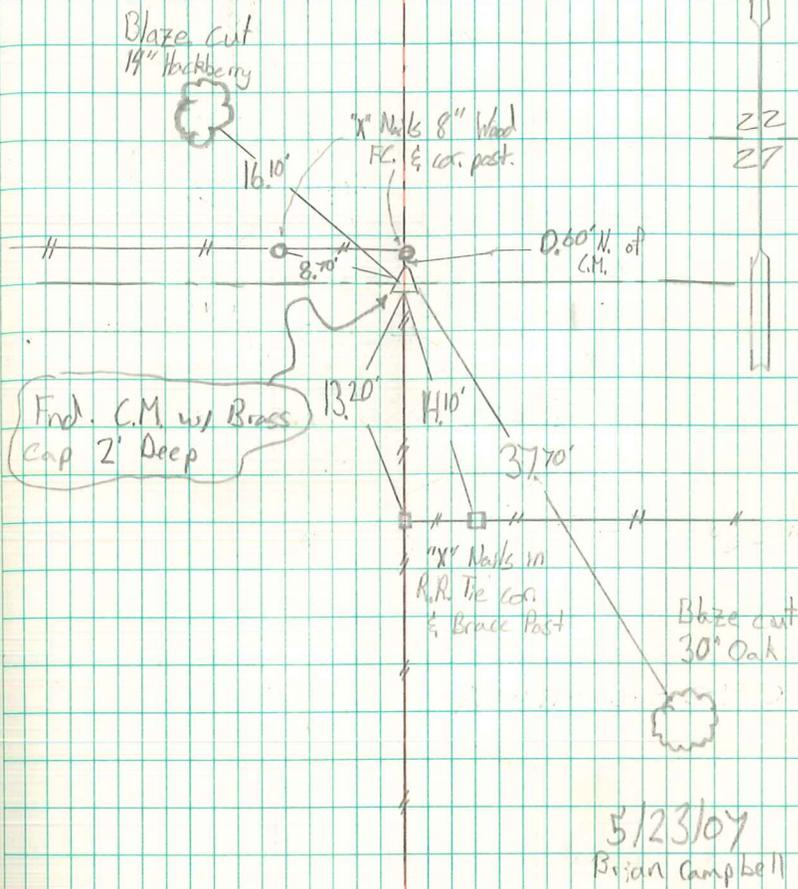 Blaze cut
14" Hackberry
"X" Nails 8" Wood
FC. & cor. post.
22
27
16.10'
8.70'
0.60' N. of
C.M.
Fnd. C.M. w/ Brass
cap 2' Deep
13.20'
14.10'
37.70'
"X" Nails in
R.R. Tie cor.
& Brace Post
Blaze cut
30" Oak
5/23/07
Brian Campbell